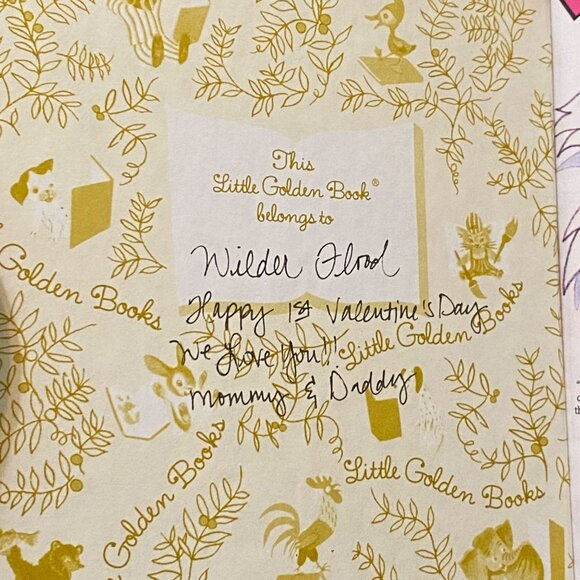 This
Little Golden Book®
belongs to
Wilder Flood
Happy 1st Valentine's Day
We Love You!!
Mommy & Daddy
Golden Books
Little Golden Books
Golden Books
Little Golden Books